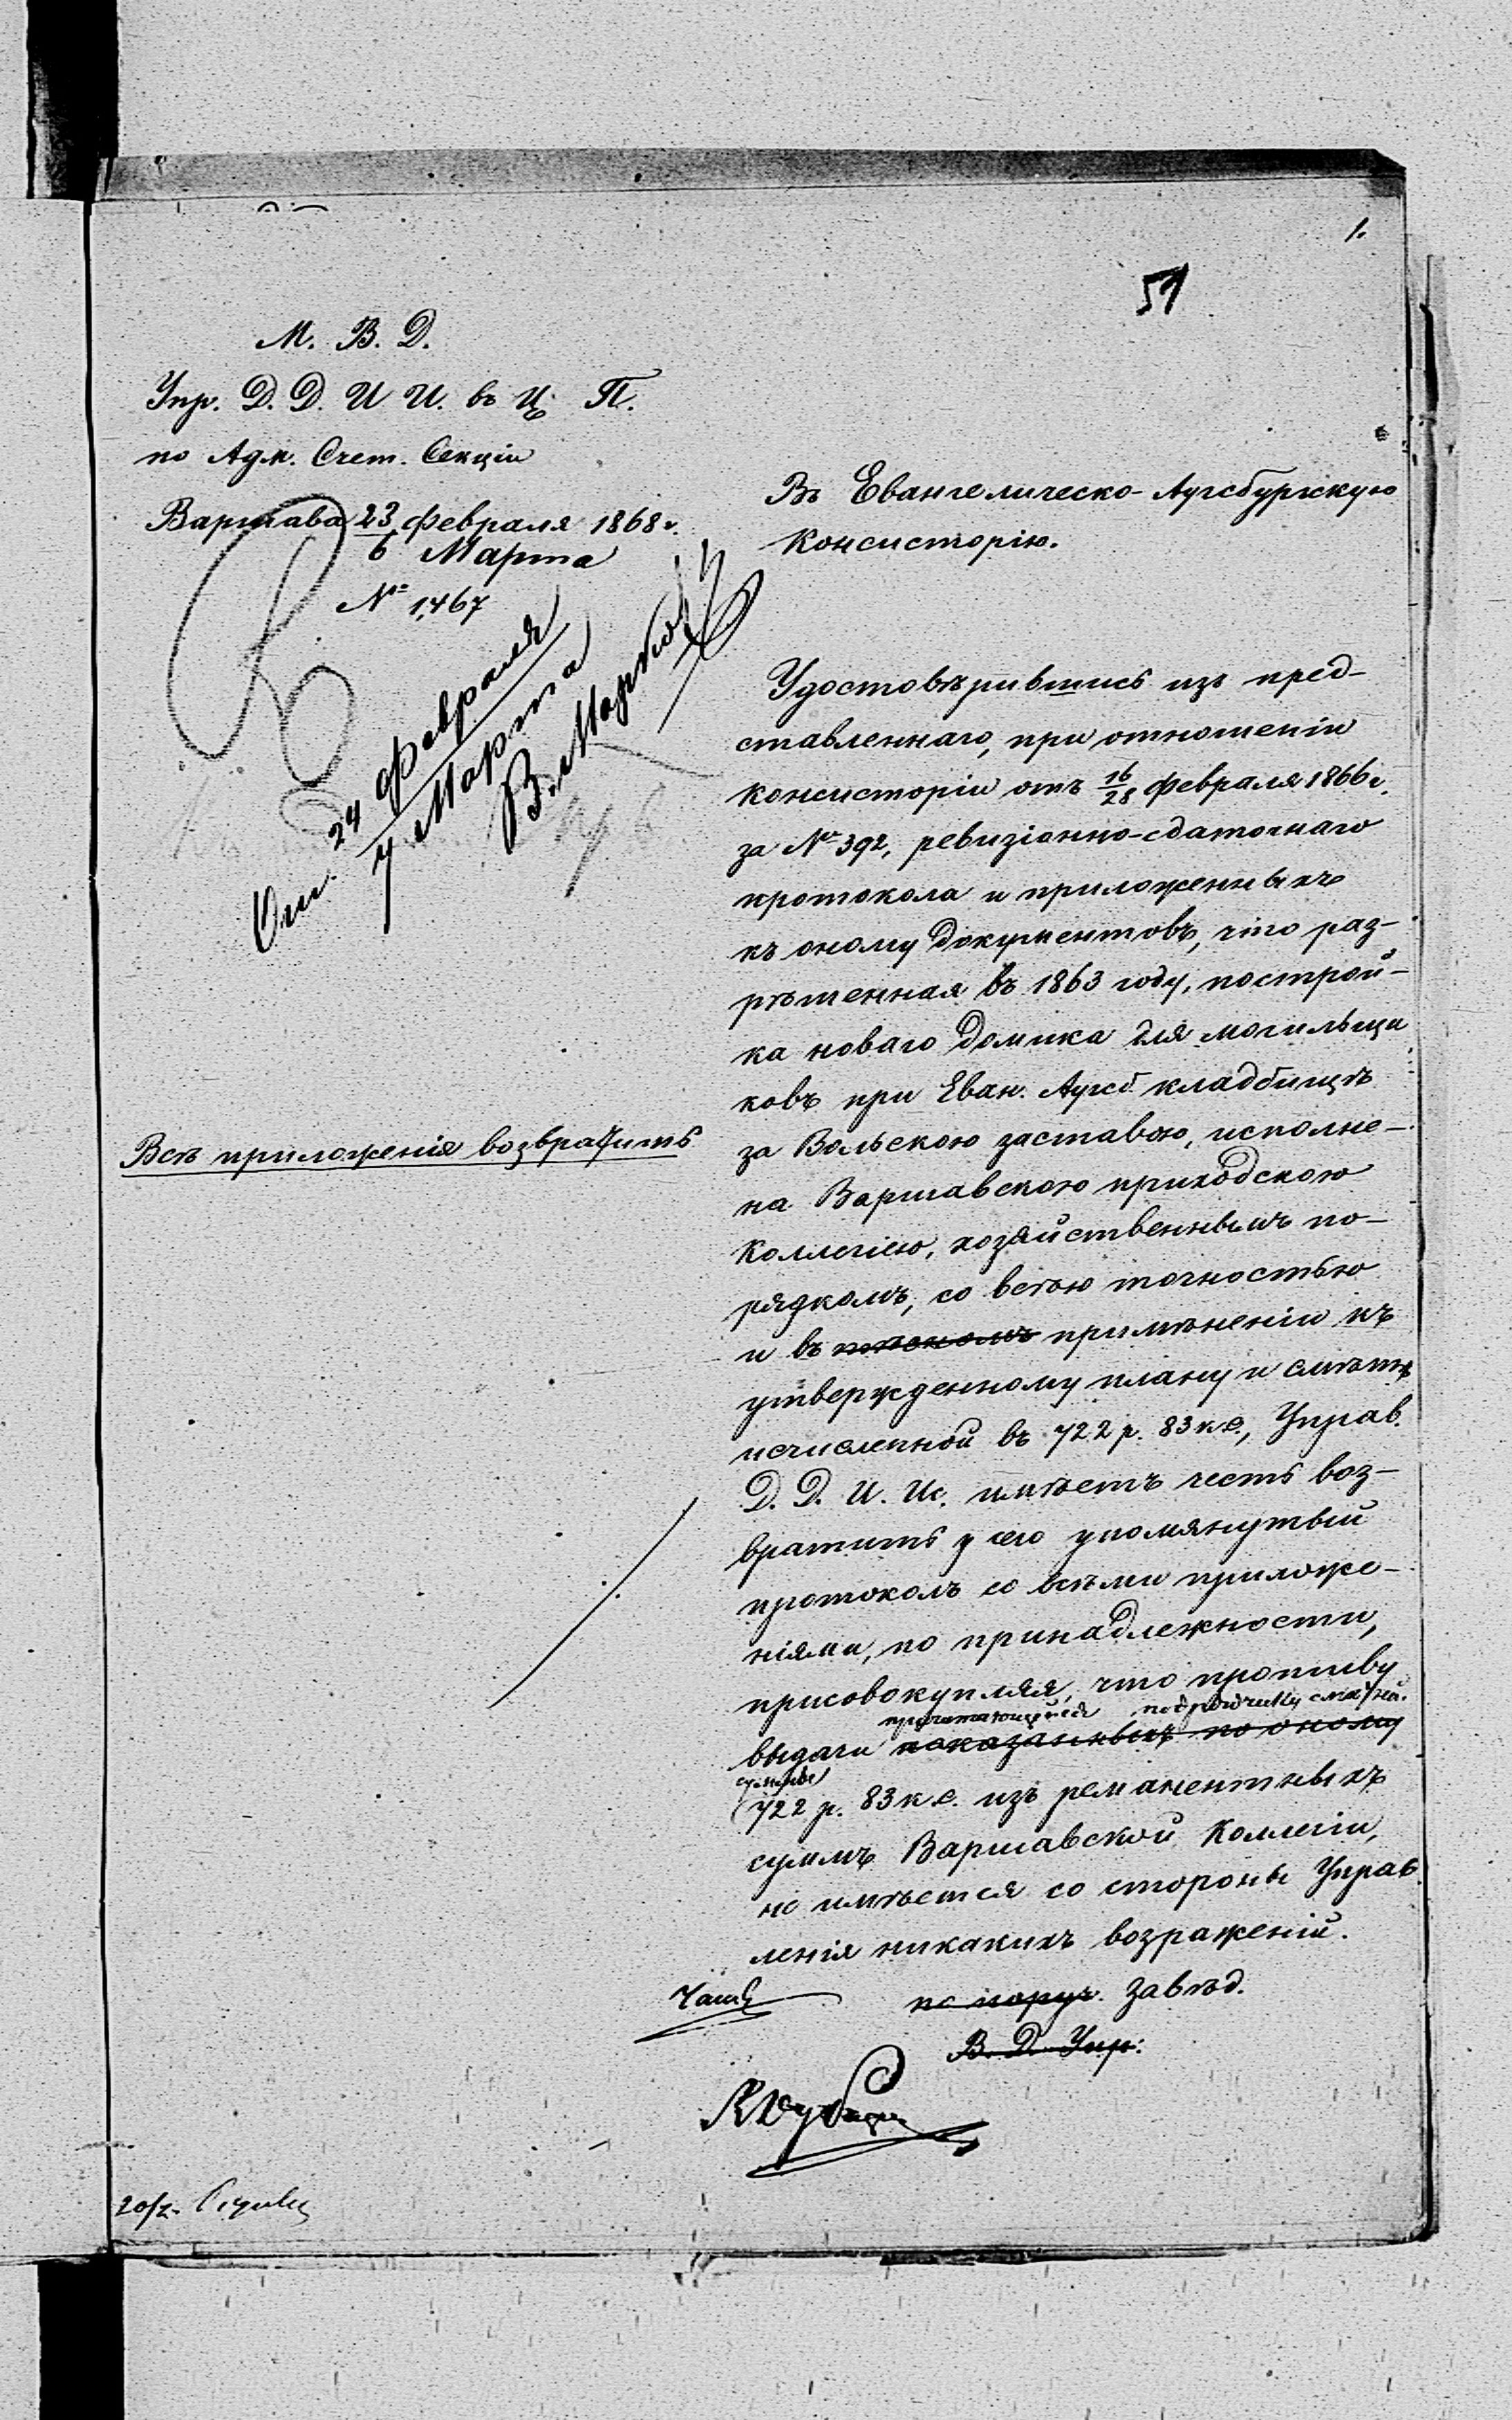 1.
51
М. В. Д.
Упр. Д. Д. И И. въ Ц. П.
по Адм. Счет. Секціи
Варшава 23 Февраля 1868 г.
6 Марта
№ 1,467
Въ Евангелическо-Аугсбургскую
Консисторію.
24 Февраля
7 Марта
Всѣ приложенія возвратить
Удостовѣрившись изъ пред-
ставленнаго, при отношеніи
Консисторіи отъ 16/28 Февраля 1866 г.
за № 392, ревизіонно-сдаточнаго
протокола и приложенныхъ
къ оному документовъ, что раз-
рѣшенная въ 1863 году, построй-
ка новаго домика для могильщи
ковъ при Еван. Аугсб. кладбищѣ
за Вольскою заставою, исполне-
на Варшавскою приходскою
Коллегіею, хозяйственнымъ по-
рядкомъ, со всею точностью
и въ примѣненіи къ
утвержденному плану и смѣтѣ
исчисленной въ 722 р. 83 к. с., Управ.
Д. Д. И. Ис. имѣетъ честь воз-
вратить у сего упомянутый
протоколъ со всѣми приложе-
ніями, по принадлежности,
присовокупляя, что противу
причитающейся подрядчику
выдачи показанныхъ по оному
суммы
722 р. 83 к. с. изъ реманентныхъ
суммъ Варшавской Коллегіи,
не имѣется со стороны Управ
ленія никакихъ возраженій.
по поруч. Завѣд.
В. Д. Упр.
20/2.